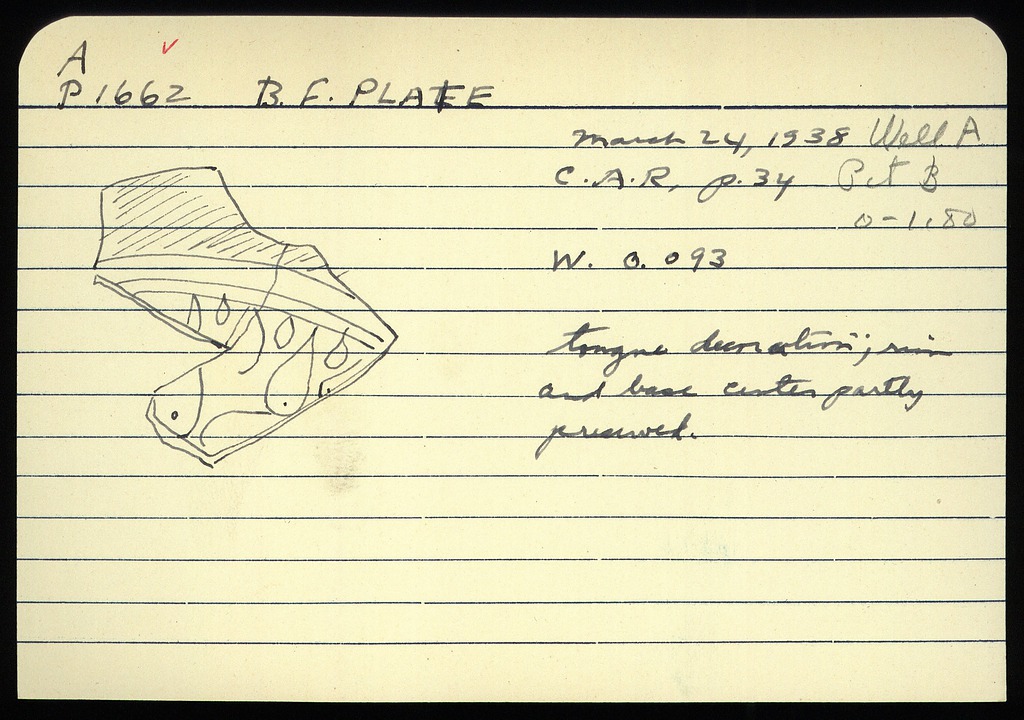 A
P 1662 B. F. PLATE
March 24, 1938 Well A
C.A.R, p.34 Pit B
0-1.80
W. 0.093
tongue decoration; rim
and base center partly
preserved.